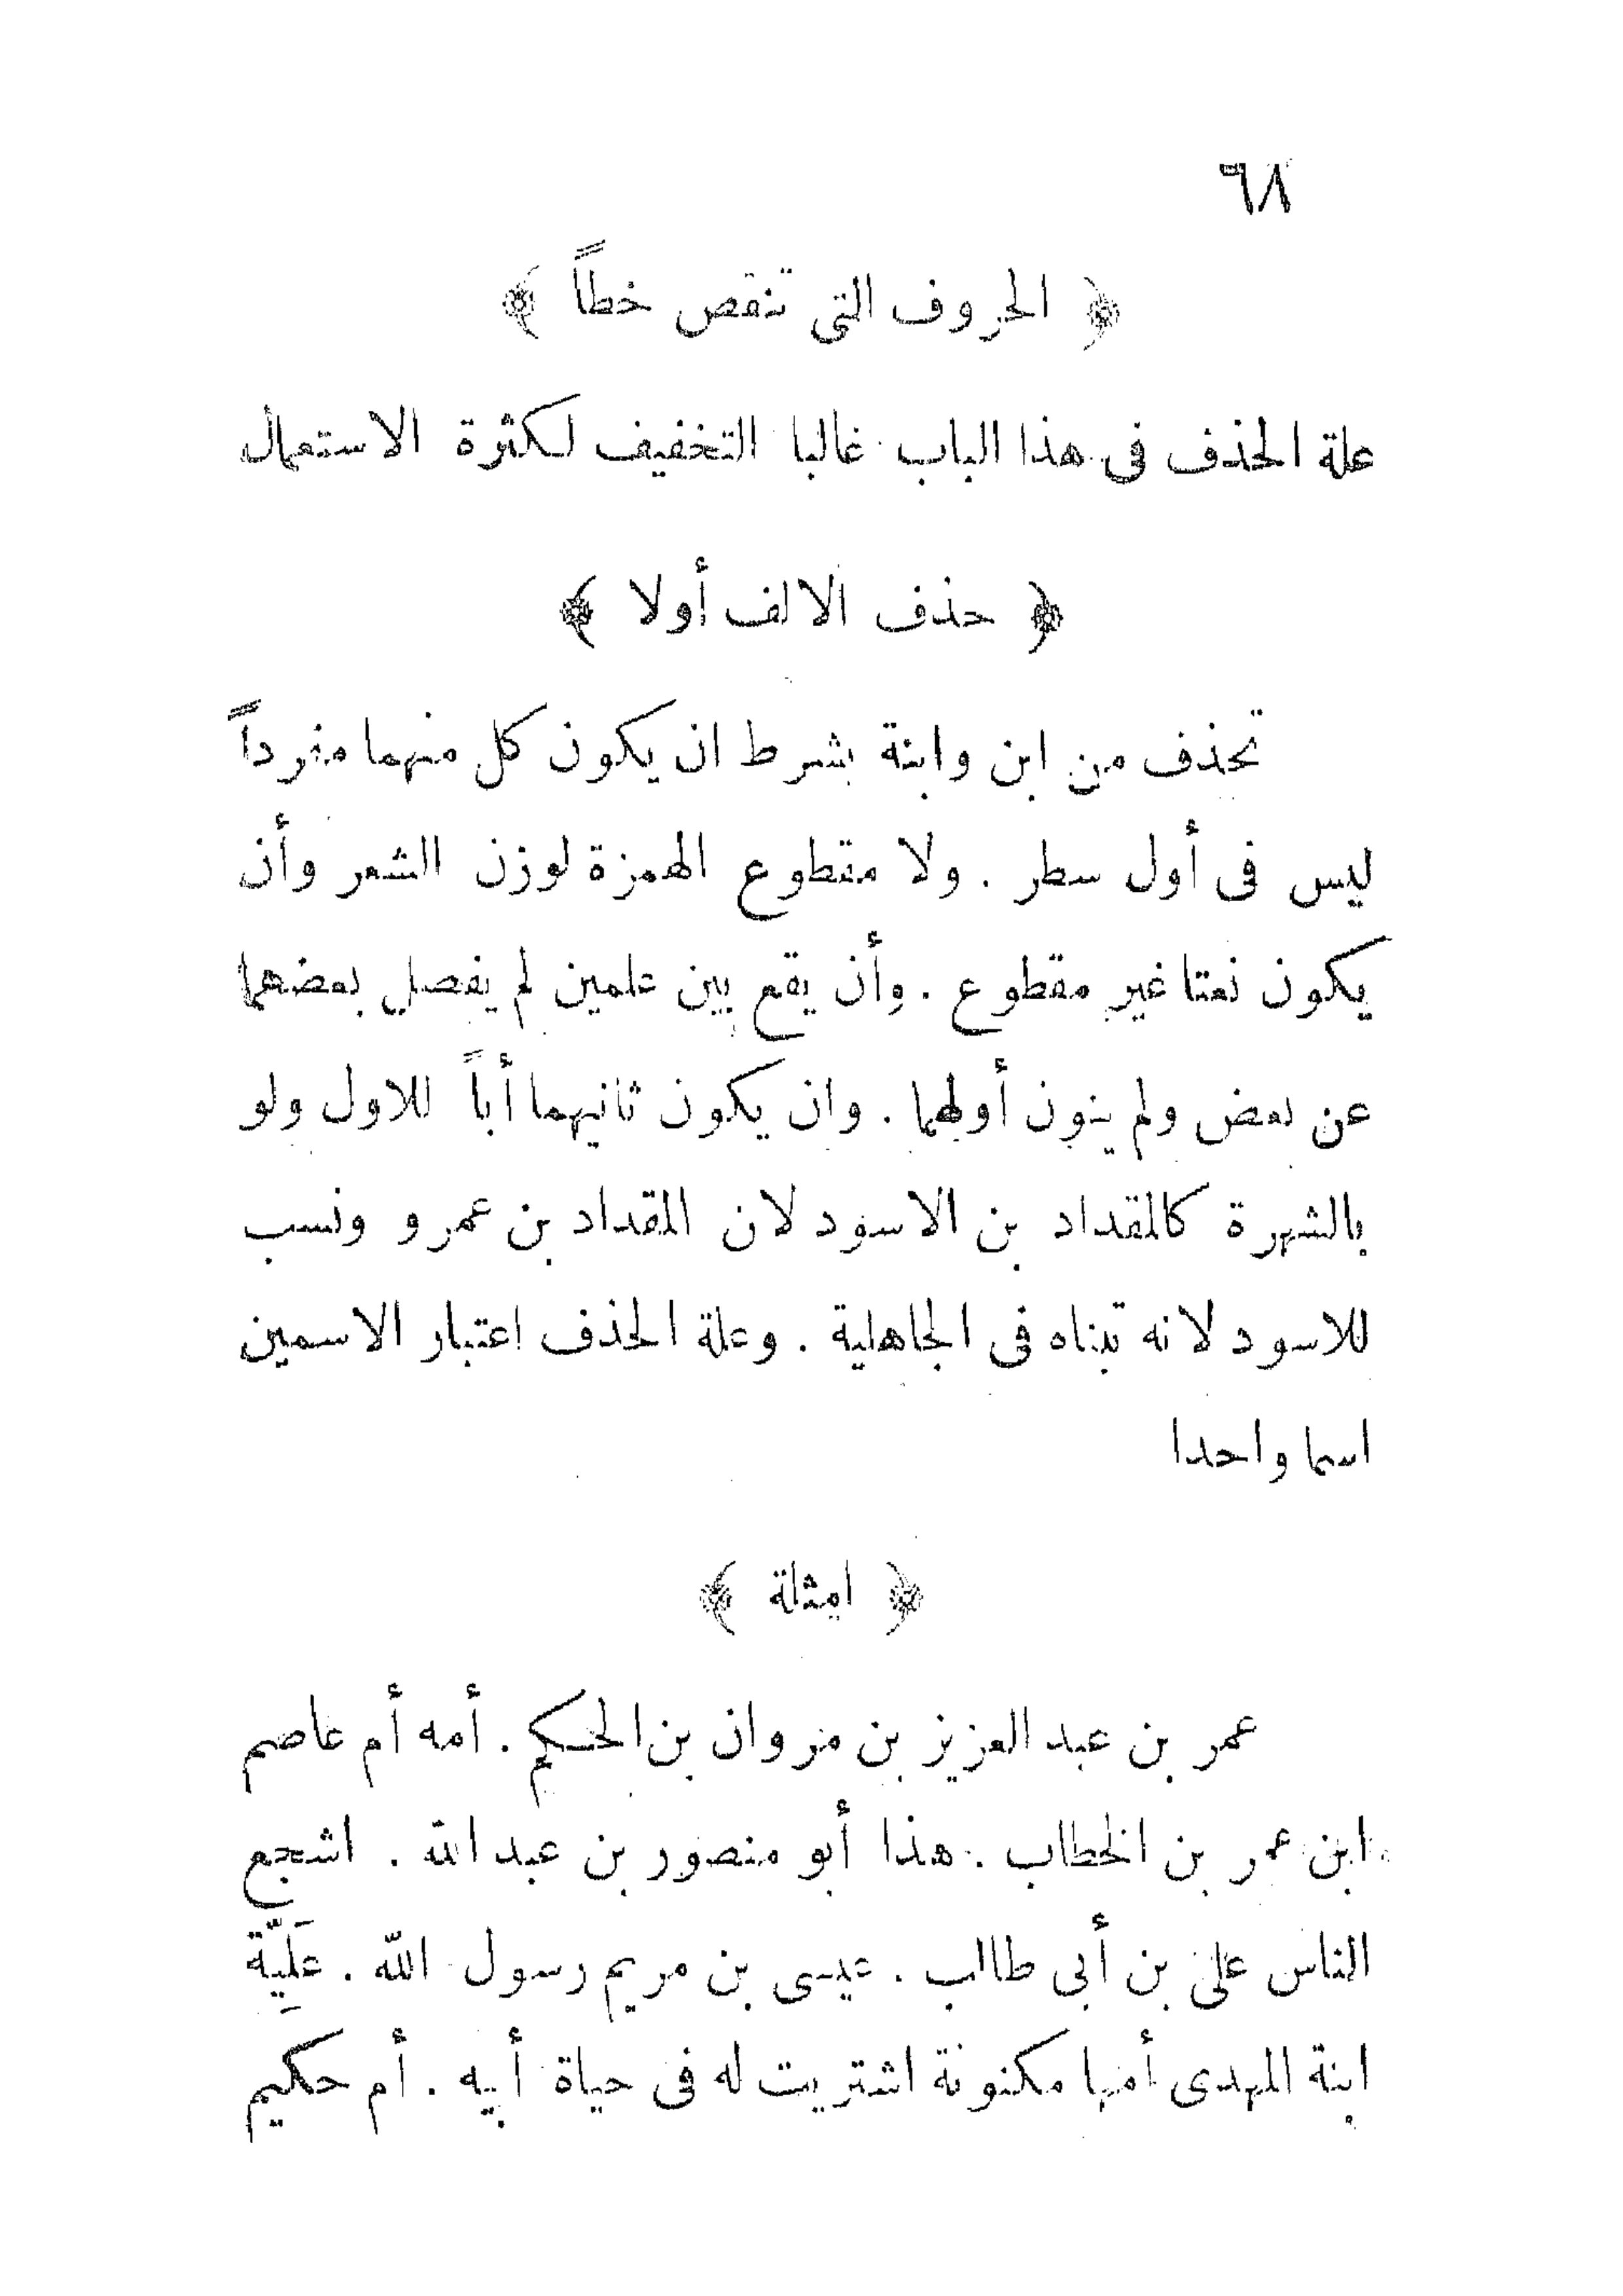 ٦٨
﴿ الحروف التى تنقص خطاً ﴾
علة الحذف فى هذا الباب غالبا التخفيف لكثرة الاستعمال
﴿ حذف الالف أولا ﴾
تحذف من ابن وابنة بشرط ان يكون كل منهما مفرداً
ليس فى أول سطر . ولا مقطوع الهمزة لوزن الشعر وأن
يكون نعتا غير مقطوع . وأن يقع بين علمين لم يفصل بعضهما
عن بعض ولم ينون أولهما . وان يكون ثانيهما أباً للاول ولو
بالشهرة كالمقداد بن الاسود لان المقداد بن عمرو ونسب
للاسود لانه تبناه فى الجاهلية . وعلة الحذف اعتبار الاسمين
اسما واحدا
﴿ امثلة ﴾
عمر بن عبد العزيز بن مروان بن الحكم . أمه أم عاصم
ابن عمر بن الخطاب . هذا أبو منصور بن عبد الله . اشجع
الناس على بن أبى طالب . عيسى بن مريم رسول الله . عَلِيَّة
ابنة المهدى أمها مكنونة اشتريت له فى حياة أبيه . أم حكيم